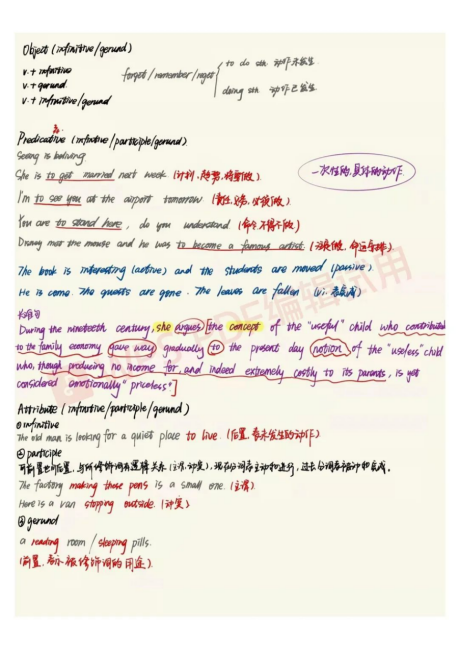 Object (infinitive/gerund)
v. + infinitive
v. + gerund
v. + infinitive/gerund
forget/remember/regret
to do sth 动作未发生
doing sth 动作已发生
表
Predicative (infinitive/participle/gerund)
Seeing is believing.
She is to get married next week (计划、趋势、将要做)
一次性的、具体的动作
I'm to see you at the airport tomorrow (责任、义务、必须做)
You are to stand here, do you understand (命令、不得不做)
Disney met the mouse and he was to become a famous artist. (注定做、命运安排)
The book is interesting (active) and the students are moved (passive)
He is come. The guests are gone. The leaves are fallen (vi. 表完成)
长难句
During the nineteenth century, she argues [the concept of the "useful" child who contributed
to the family economy gave way gradually to the present day notion of the "useless" child
who, though producing no income for, and indeed extremely costly to its parents, is yet
considered emotionally "priceless"]
Attribute (infinitive/participle/gerund)
① infinitive
The old man is looking for a quiet place to live. (后置、表未发生的动作)
② participle
可前置也可后置，与所修饰词有逻辑关系(主谓、动宾)，现在分词表主动和进行，过去分词表被动和完成。
The factory making these pens is a small one. (主谓)
Here is a van stopping outside. (动宾)
③ gerund
a reading room / sleeping pills.
(前置、表示被修饰词的用途)
PDF编辑试用